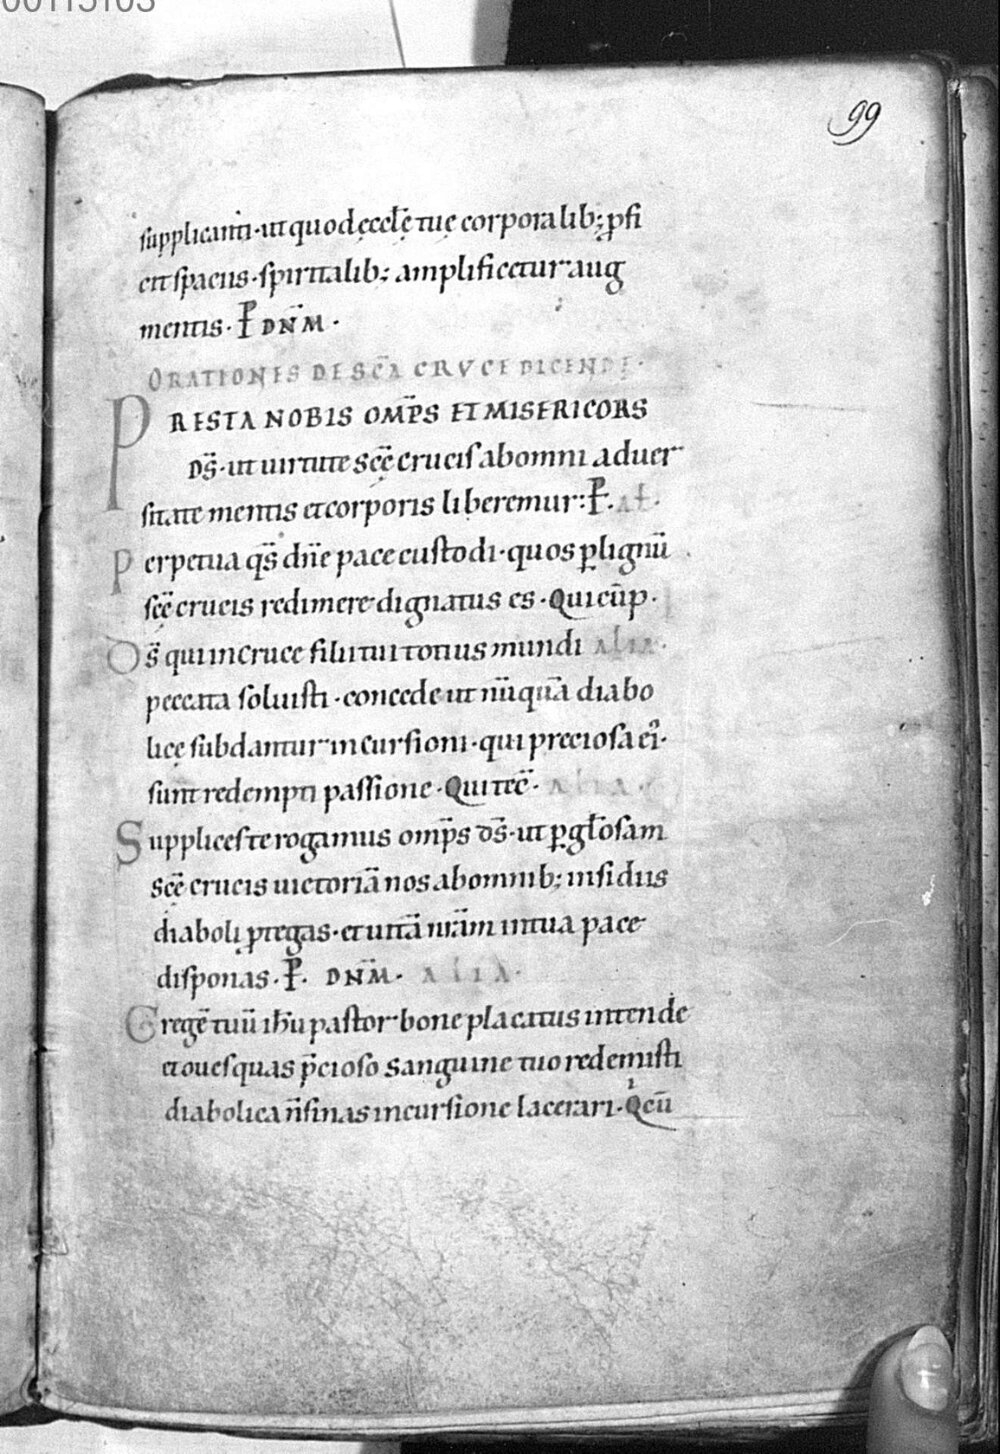 00115103
99
supplicanti · ut quod ęcclę tuę corporalib; ꝓfi
cit spacus · spiritalib; amplificetur aug
mentis · P̶ DN̄M ·
ORATIONES DE SC̄A CRVCE DICENDE ·
PRESTA NOBIS OMP̄S ET MISERICORS
DS̄ · ut uirtute scę̄ crucis ab omni aduer
sitate mentis et corporis liberemur : P̶. AŁ.
Perpetua qs̄ dn̄e pace custodi · quos ꝑ lignū
scę̄ crucis redimere dignatus es · Qui cū p ·
Ds̄ qui in cruce filii tui totius mundi ALIA ·
peccata soluisti · concede ut nūquā diabo
licę subdantur incursioni · qui preciosa ei᾽ ·
sunt redempti passione · Qui tec̄ · ALIA ·
Supplices te rogamus omp̄s ds̄ · ut ꝑ głosam
scę̄ crucis uictoriā nos ab omnib; insidiis
diaboli ꝓtegas · et uitā nrām in tua pace
disponas · P̶. DN̄M · ALIA ·
Gregē tuū ih̄u pastor bone placatus intende
et oues quas p̄cioso sanguine tuo redemisti
diabolica n̄ sinas incursione lacerari · Qⁱ cū